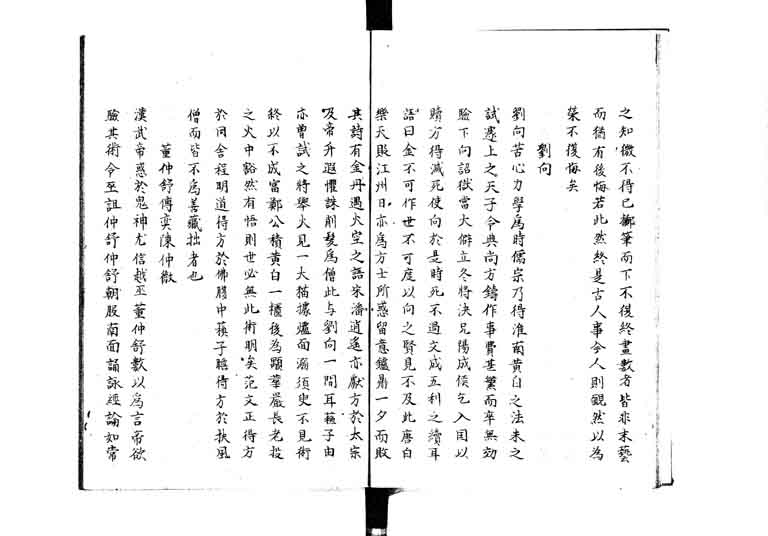 之知微不得已擲筆而下不復終畫數者皆非末藝
而猶有後悔若此然終是古人事今人則靦然以為
榮不復悔矣
劉向
劉向苦心力學為時儒宗乃得淮南黃白之法未之
試遽上之天子令典尚方鑄作事費甚驚而卒無効
驗下向詔獄當大僻立冬將決兄陽成侯乞入国以
贖方得減死使向於是時死不過文成五利之續耳
語曰金不可作世不可度以向之賢見不及此唐白
樂天貶江州日亦為方士所惑留意鑪鼎一夕而敗
其詩有金丹遇火空之語宋潘逍遙亦獻方於太宗
及帝升遐懼誅削髮為僧此与劉向一間耳蘇子由
亦曾試之將舉火見一大猫據爐而溺須臾不見術
終以不成富鄭公積黃白一櫃後為顒華嚴長老投
之火中豁然有悟則世必無此術明矣范文正得方
於同舍程明道得方於佛腹中蘇子瞻得方於扶風
僧而皆不為善藏拙者也
董仲舒傅奕陳仲微
漢武帝惑於鬼神尤信越巫董仲舒數以為言帝欲
驗其術令巫詛仲舒仲舒朝服南面誦詠經論如常